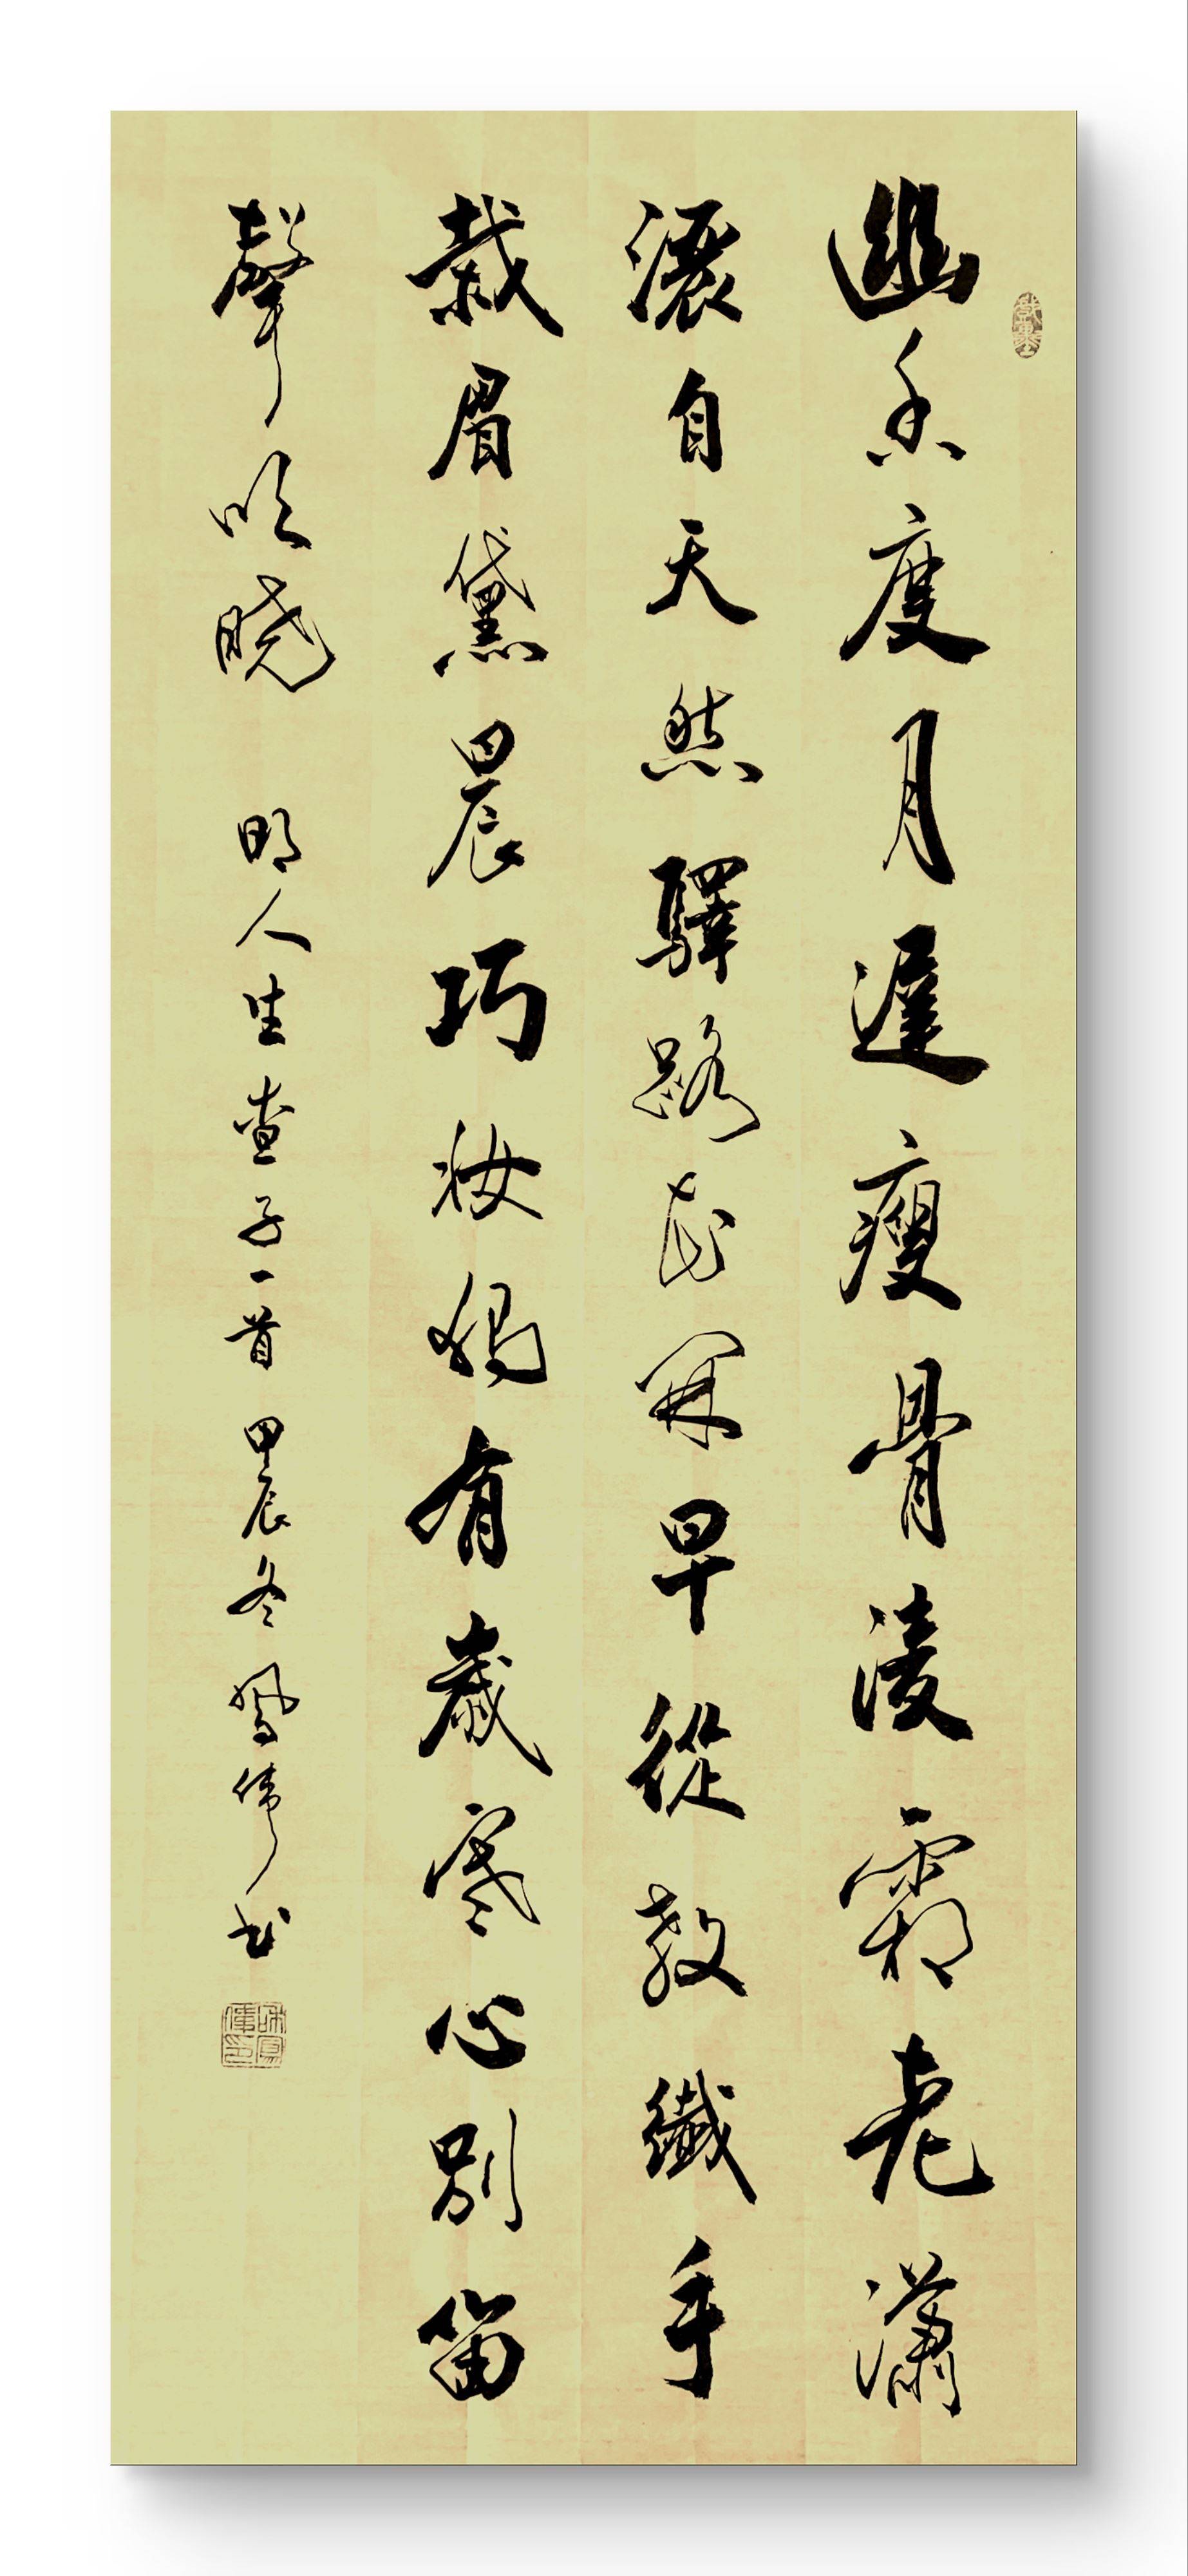 幽香度月遲瘦骨淩霜老瀟
灑自天然驛路花開早從教纖手
栽眉黛晨巧妝獨有歲寒心別笛
聲吹曉 明人生查子一首 甲辰冬 鳳偉書